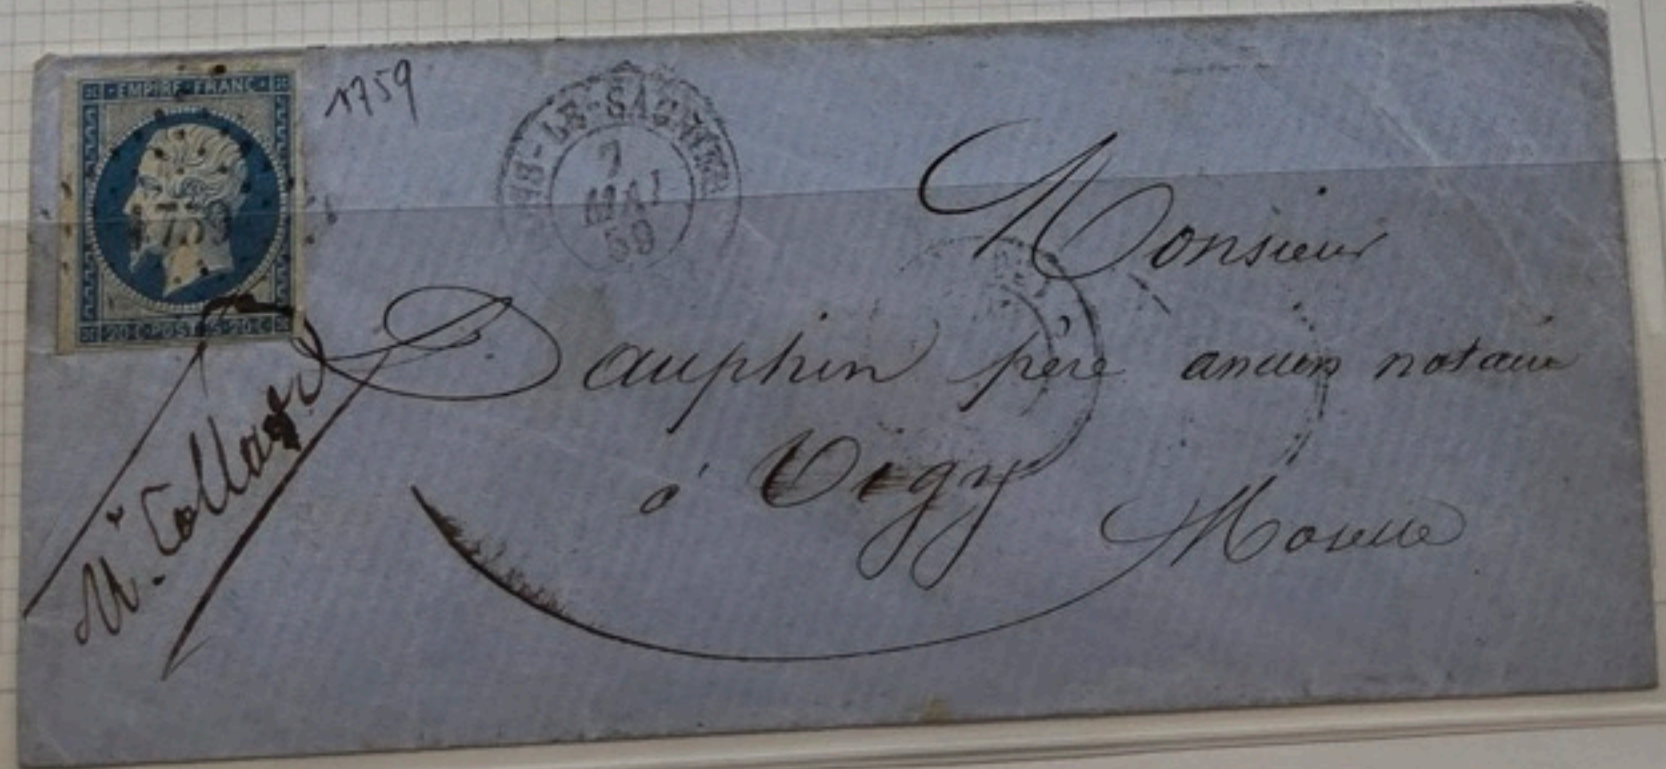 EMPIRE FRANC
1759
20·C·POSTES·20·C
1759
LONS-LE-SAUNIER
7
MAI
59
Monsieur
Dauphin père ancien notaire
à Vigy
Moselle